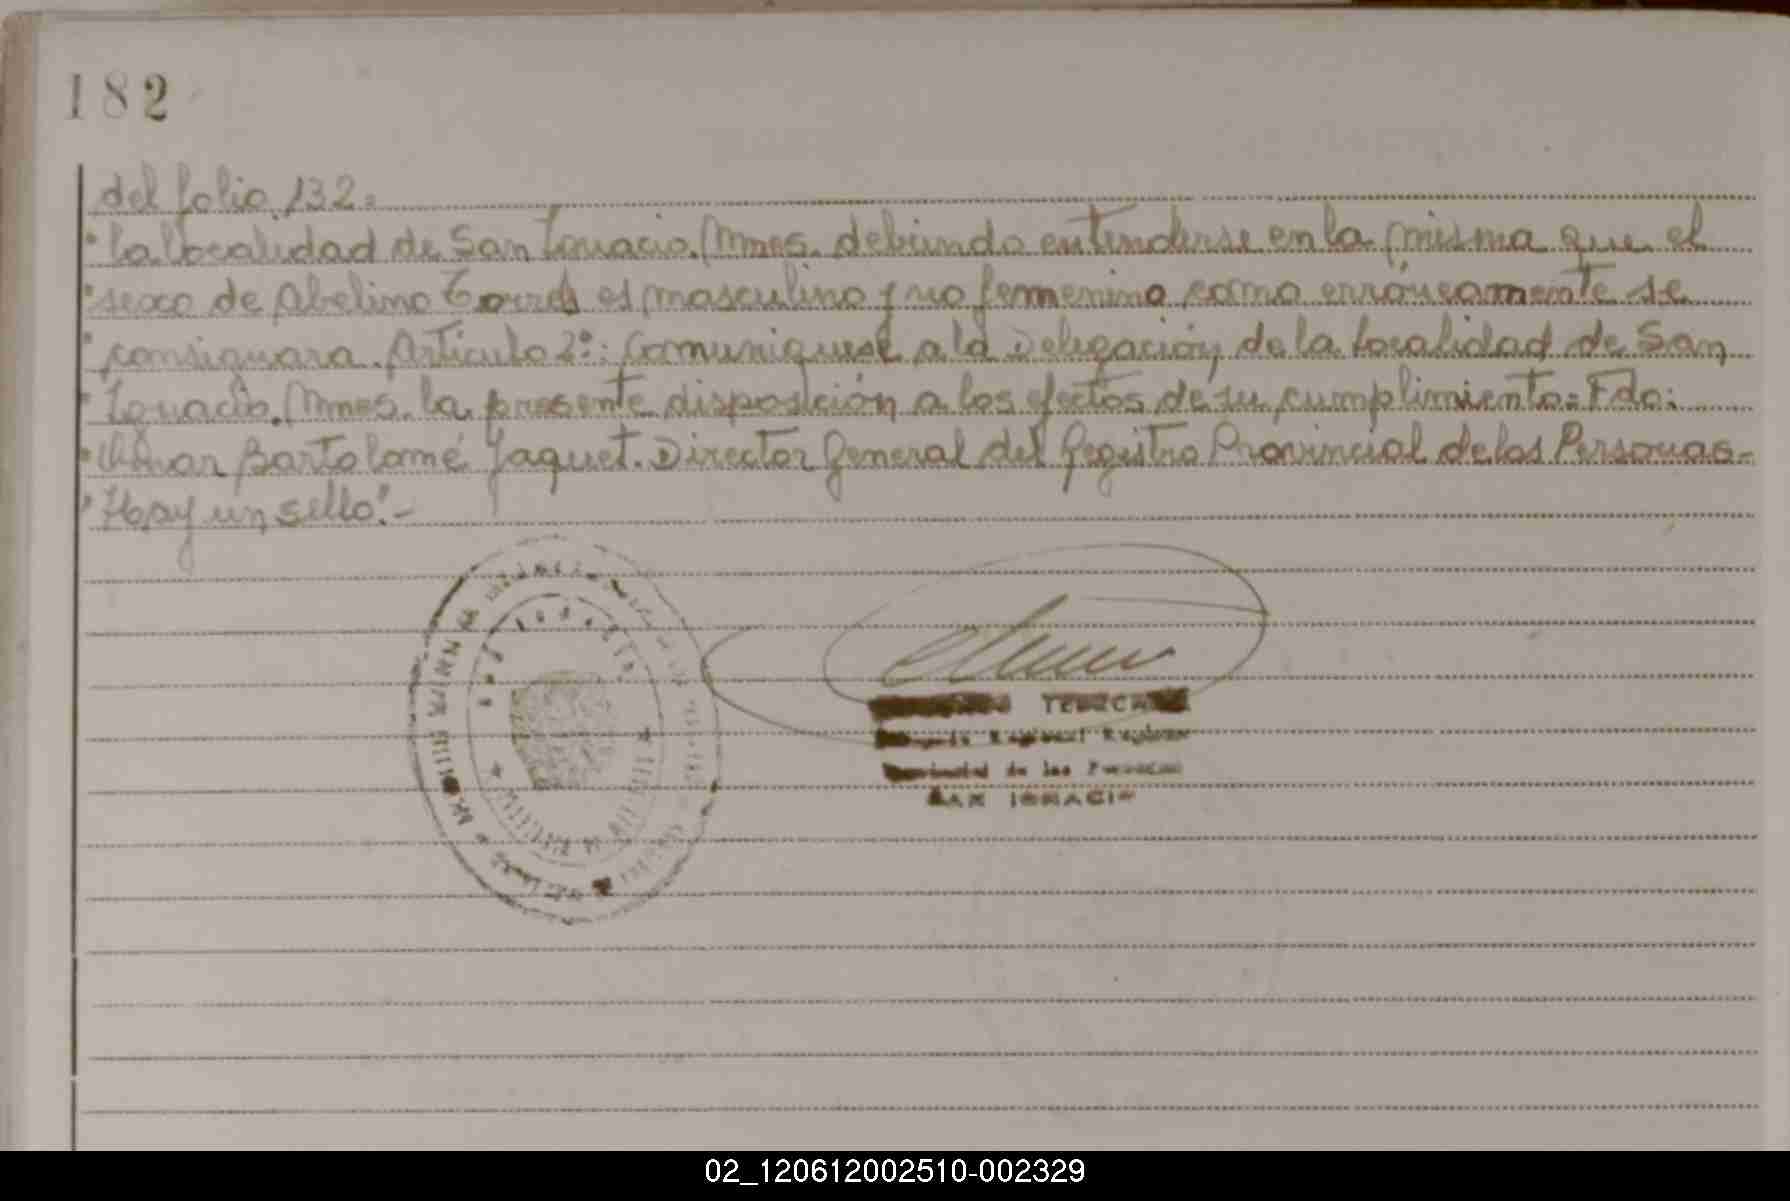 182
del folio 132=
"la localidad de San Ignacio. Mnes. debiendo entenderse en la misma que el
"sexo de Abelino Torres es masculino y no femenino como erróneamente se
"consignara. Articulo 2º: Comuniquese a la Delegación de la Localidad de San
"Ignacio. Mnes. la presente disposición a los efectos de su cumplimiento = Fdo:
" Bartolomé Jaquet. Director General del Registro Provincial de las Personas-
"Hay un sello".-
Regional
Provincial de las Personas
SAN IGNACIO
02_120612002510-002329